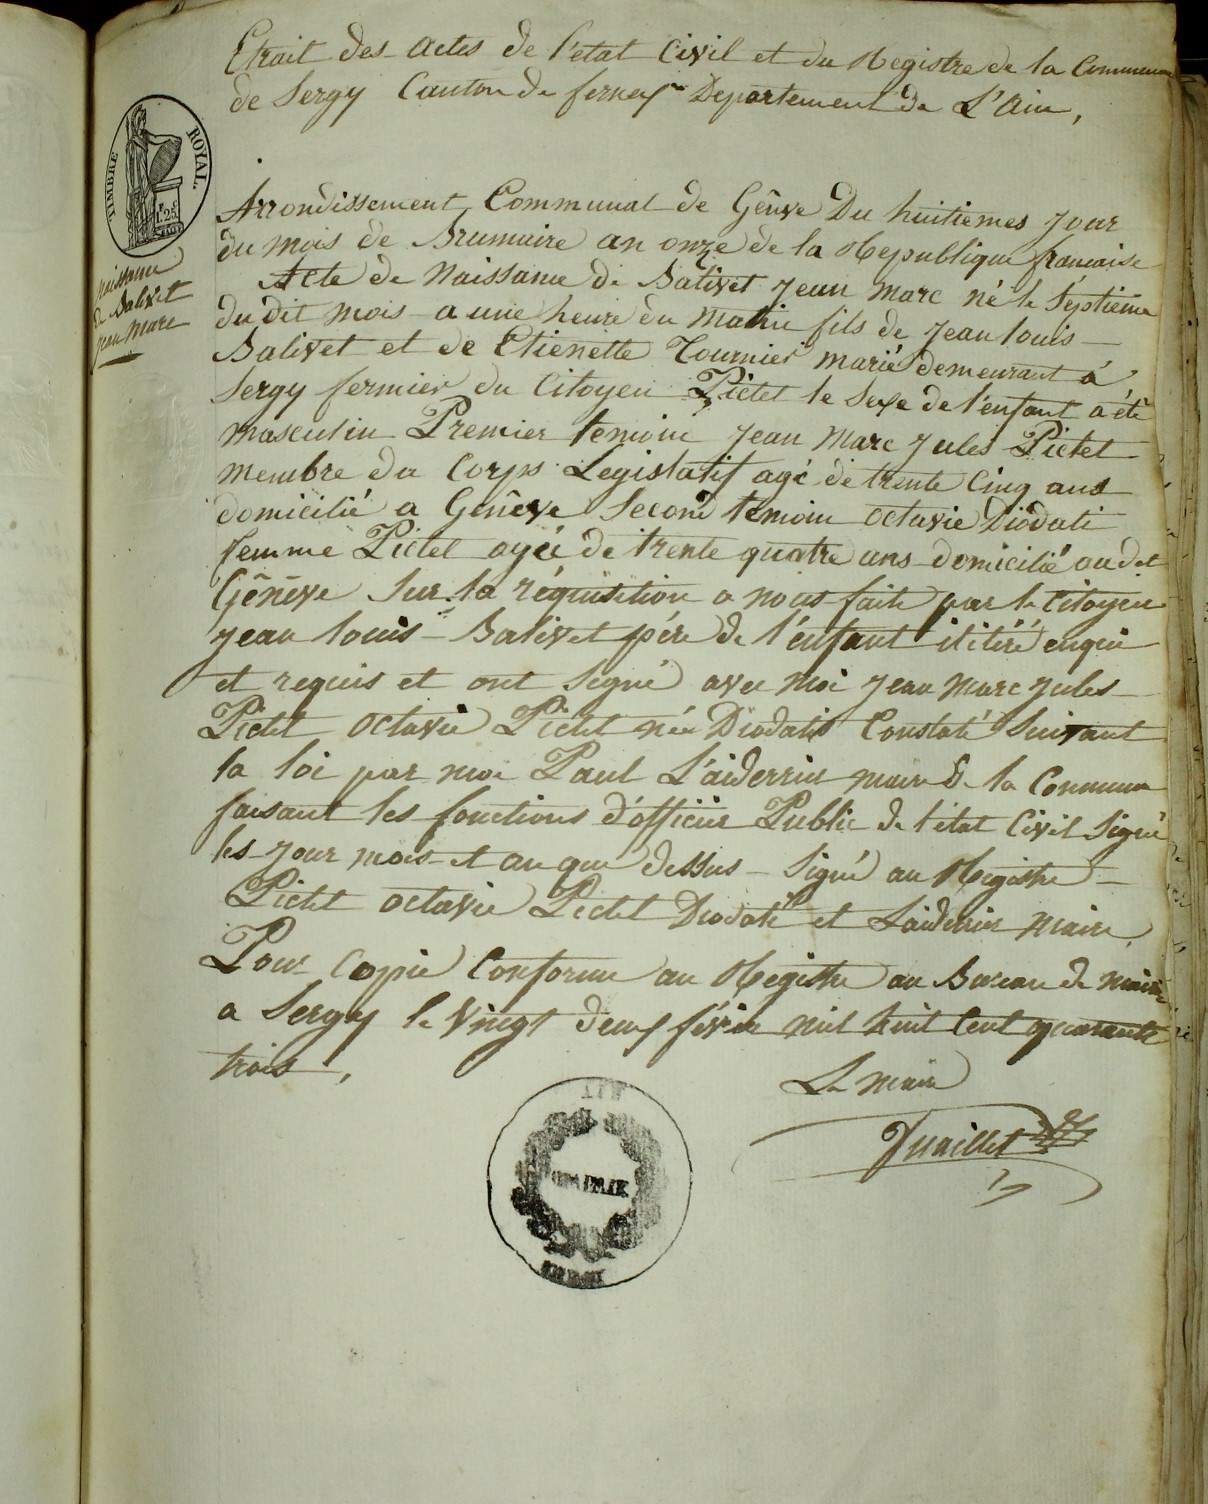 Etrait des actes de l'etat Civil et du Registre de la Commune
de Sergy Canton de ferney Departement de L'Ain,
TIMBRE ROYAL.
Naissance
de Balivet
jean marc
Arrondissement Communal de Gênve Du huitiemes Jour
du mois de Brumaire an onze de la Republique francaise
Acte de Naissance de Balivet Jean Marc né le Septieme
du dit mois a une heure du Matin fils de Jean louis
Balivet et de Etienette Tournier marié demeurant á
Sergy fermier du Citoyen Pictet le Sexe de l'enfant a été
masculin Premier temoin Jean Marc Jules Pictet
membre du Corps Legislatif agé de trente Cinq ans
domicilié a Genêve Second temoin octavie Diodati
femme Pictet agée de trente quatre ans domicilié audt
Gênêve Sur la réquisition a nous faite par le Citoyen
Jean louis Balivet pére de l'enfant ilitéré enquis
et requis et ont Signé avec moi Jean Marc Jules
Pictet octavie Pictet née Diodati Constaté Suivant
la loi par moi Paul L'aiderrier maire de la Commune
faisant les fonctions d'officier Public de l'état Civil Signé
les Jour mois et an que dessus Signé au Registre
Pictet octavie Pictet Diodati et Laiderrier Maire,
Pour Copie Conforme au Registre au Bureau de mairie
a Sergy le Vingt deux février mil huit Cent quarante
trois,
Le maire
MAIRIE